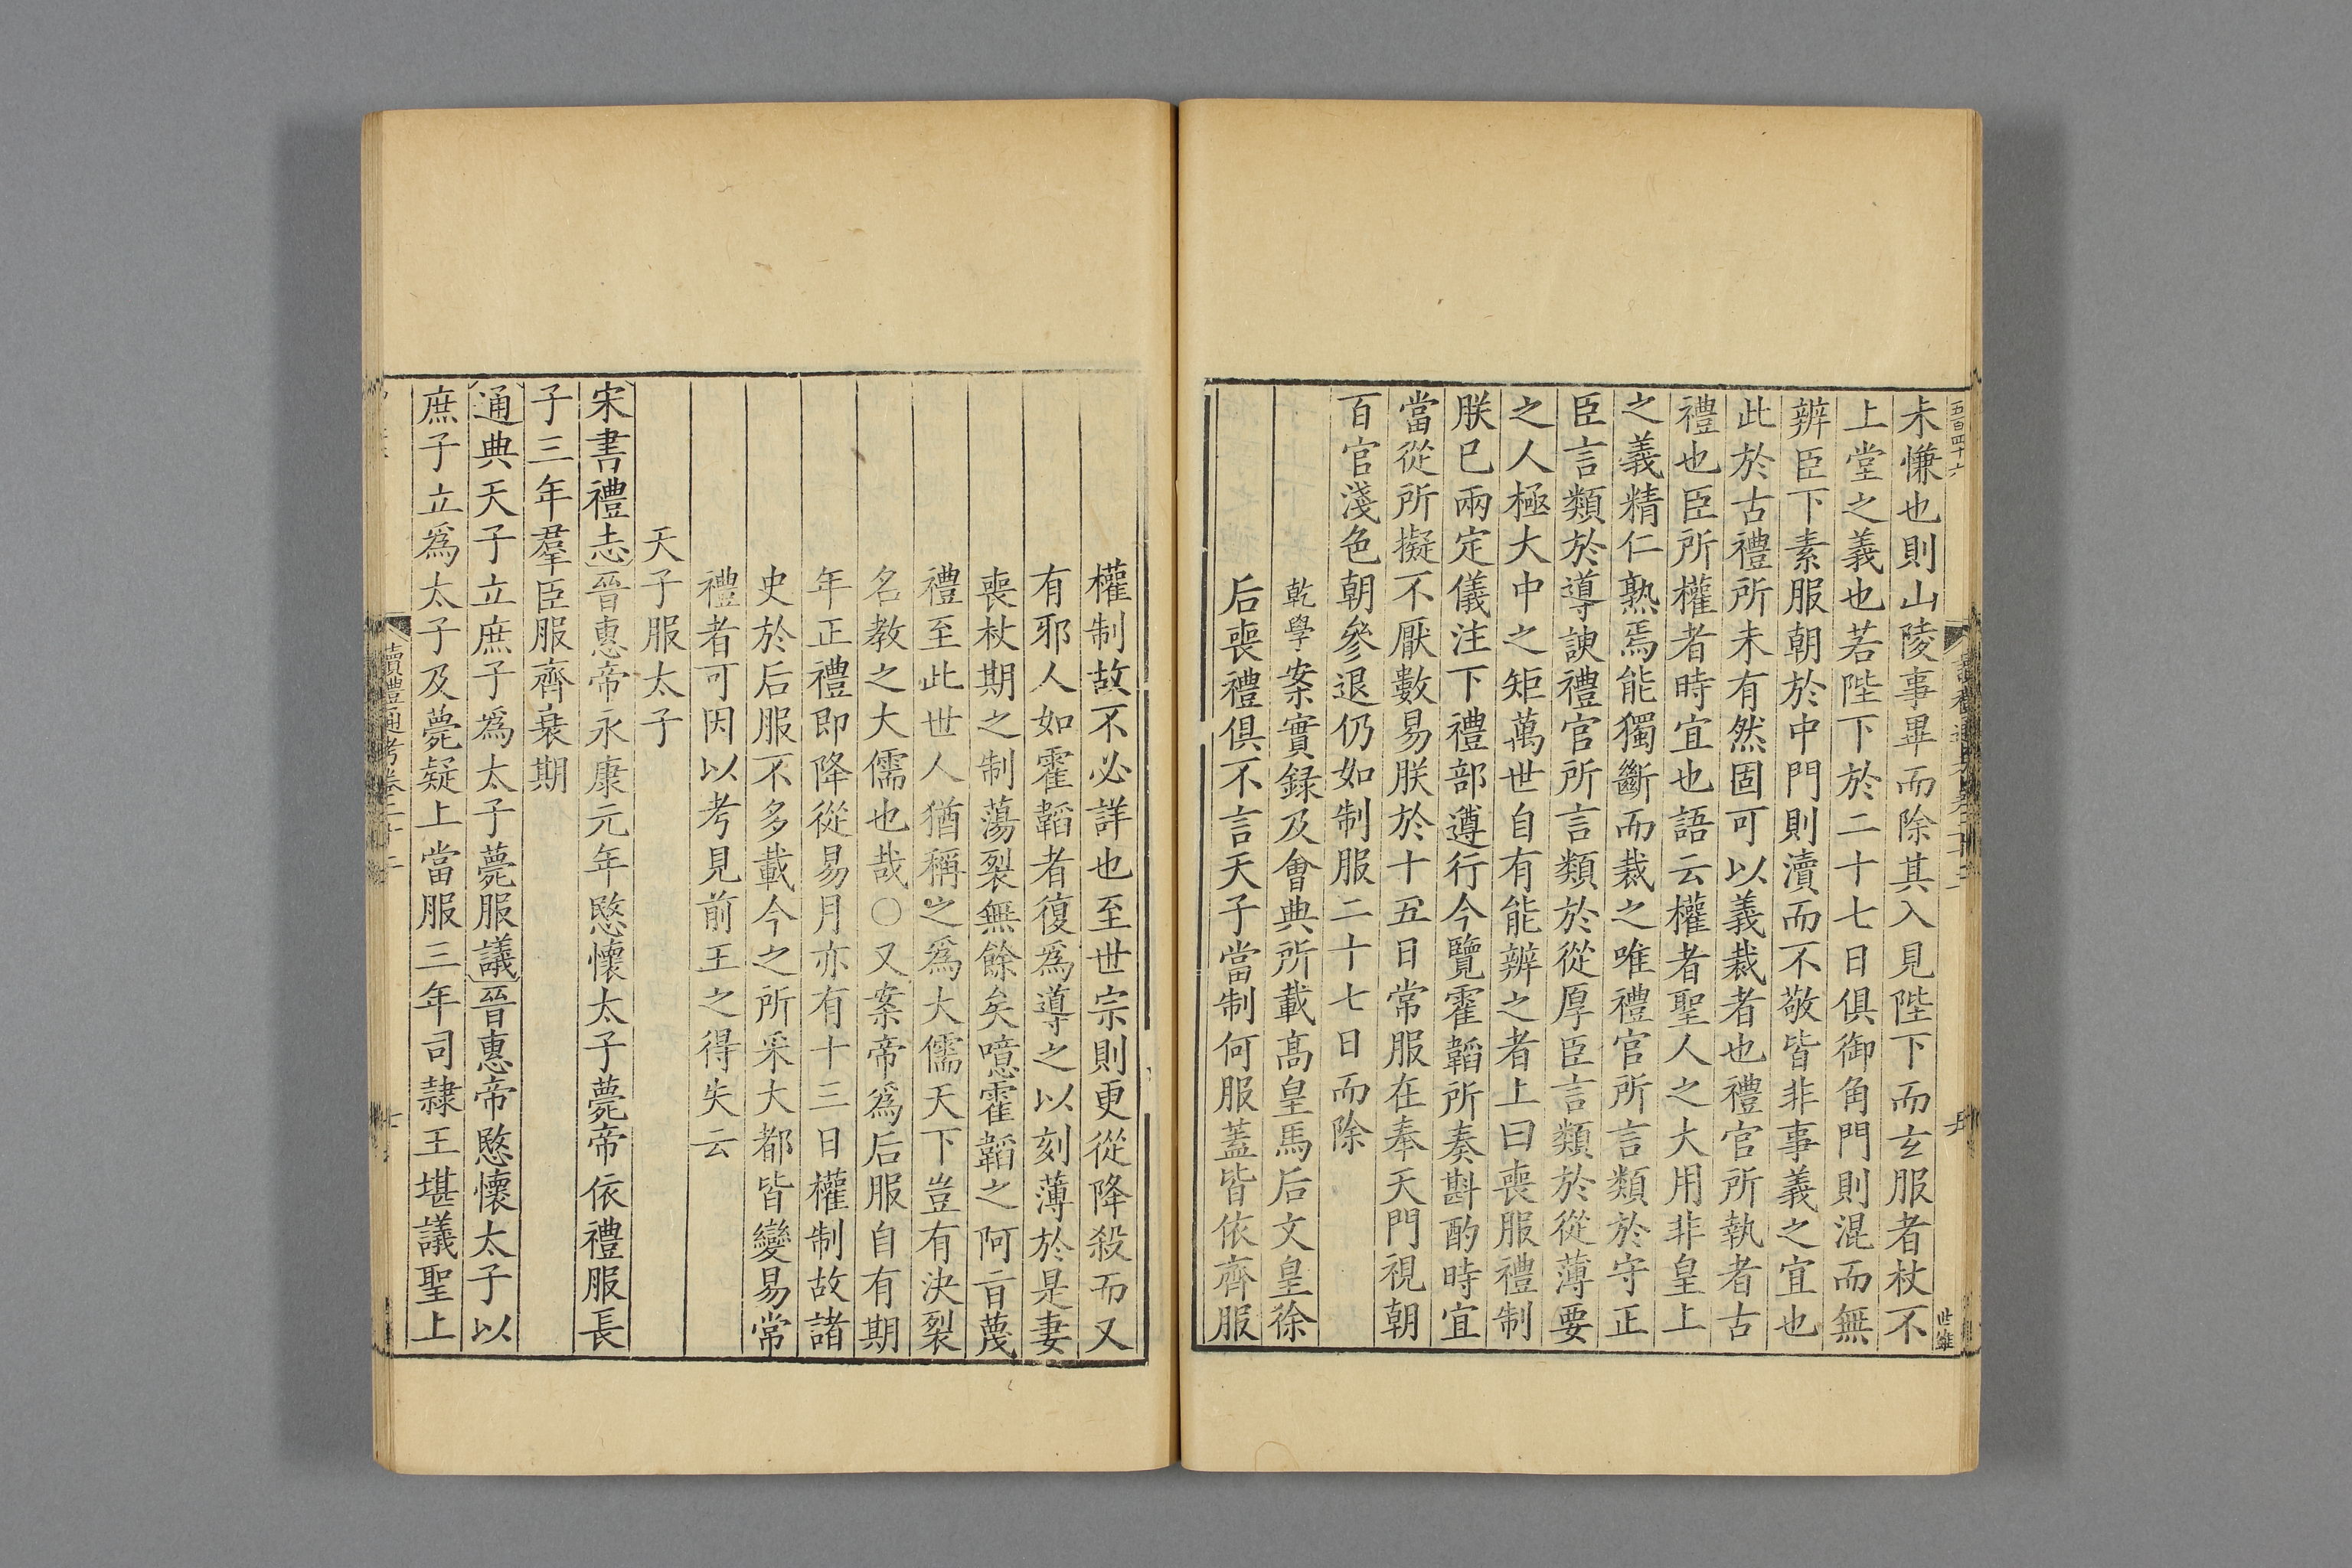 五百四十六
未慊也則山陵事畢而除其入見陛下而玄服者杖不
上堂之義也若陛下於二十七日俱御角門則混而無
辨臣下素服朝於中門則瀆而不敬皆非事義之宜也
此於古禮所未有然固可以義裁者也禮官所執者古
禮也臣所權者時宜也語云權者聖人之大用非皇上
之義精仁熟焉能獨斷而裁之唯禮官所言類於守正
臣言類於導諛禮官所言類於從厚臣言類於從薄要
之人極大中之矩萬世自有能辨之者上曰喪服禮制
朕已兩定儀注下禮部遵行今覽霍韜所奏斟酌時宜
當從所擬不厭數易朕於十五日常服在奉天門視朝
百官淺色朝參退仍如制服二十七日而除
乾學案實録及會典所載高皇馬后文皇徐
后喪禮俱不言天子當制何服蓋皆依齊服
權制故不必詳也至世宗則更從降殺而又
有邪人如霍韜者復爲導之以刻薄於是妻
喪杖期之制蕩裂無餘矣噫霍韜之阿盲蔑
禮至此世人猶稱之爲大儒天下豈有決裂
名教之大儒也哉〇又案帝爲后服自有期
年正禮即降從易月亦有十三日權制故諸
史於后服不多載今之所采大都皆變易常
禮者可因以考見前王之得失云
天子服太子
宋書禮志晉惠帝永康元年愍懷太子薨帝依禮服長
子三年羣臣服齊衰期
通典天子立庶子爲太子薨服議晉惠帝愍懷太子以
庶子立爲太子及薨疑上當服三年司隷王堪議聖上
讀禮通考卷二十二